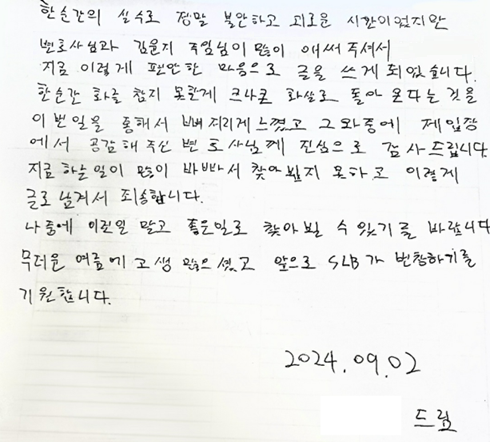 한순간의 실수로 정말 불안하고 괴로운 시간이었지만
변호사님과 김윤지 주임님이 많이 애써주셔서
지금 이렇게 편안한 마음으로 글을 쓰게 되었습니다.
한순간 화를 참지 못한게 크나큰 화살로 돌아 온다는 것을
이번일을 통해서 뼈저리게 느꼈고 그 와중에 제입장
에서 공감해 주신 변호사님께 진심으로 감사드립니다
지금 하는일이 많이 바빠서 찾아뵙지 못하고 이렇게
글로 남겨서 죄송합니다.
나중에 이런일 말고 좋은일로 찾아뵐 수 있기를 바랍니다
무더운 여름에 고생 많으셨고 앞으로 SLB가 번창하기를
기원합니다.
2024.09.02
드림